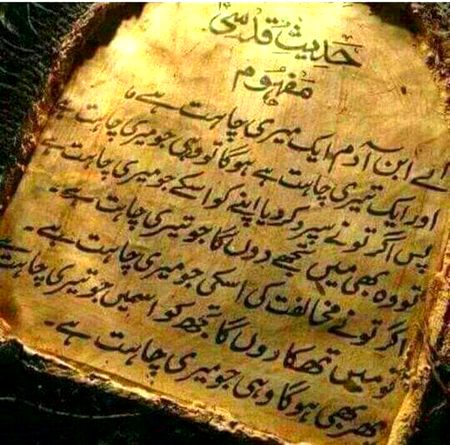 حدیثِ قدسی
مفہوم
اے ابن آدم! ایک میری چاہت ہے
اور ایک تیری چاہت ہے ہوگا تو وہی جو میری چاہت ہے
پس اگر تو نے سپرد کر دیا اپنے کو اسکے جو میری چاہت ہے
تو وہ بھی میں تجھے دوں گا جو تیری چاہت ہے۔
اگر تو نے مخالفت کی اسکی جو میری چاہت ہے۔
تو میں تھکا دوں گا تجھ کو اسمیں جو تیری چاہت ہے
پھر بھی ہوگا وہی جو میری چاہت ہے۔